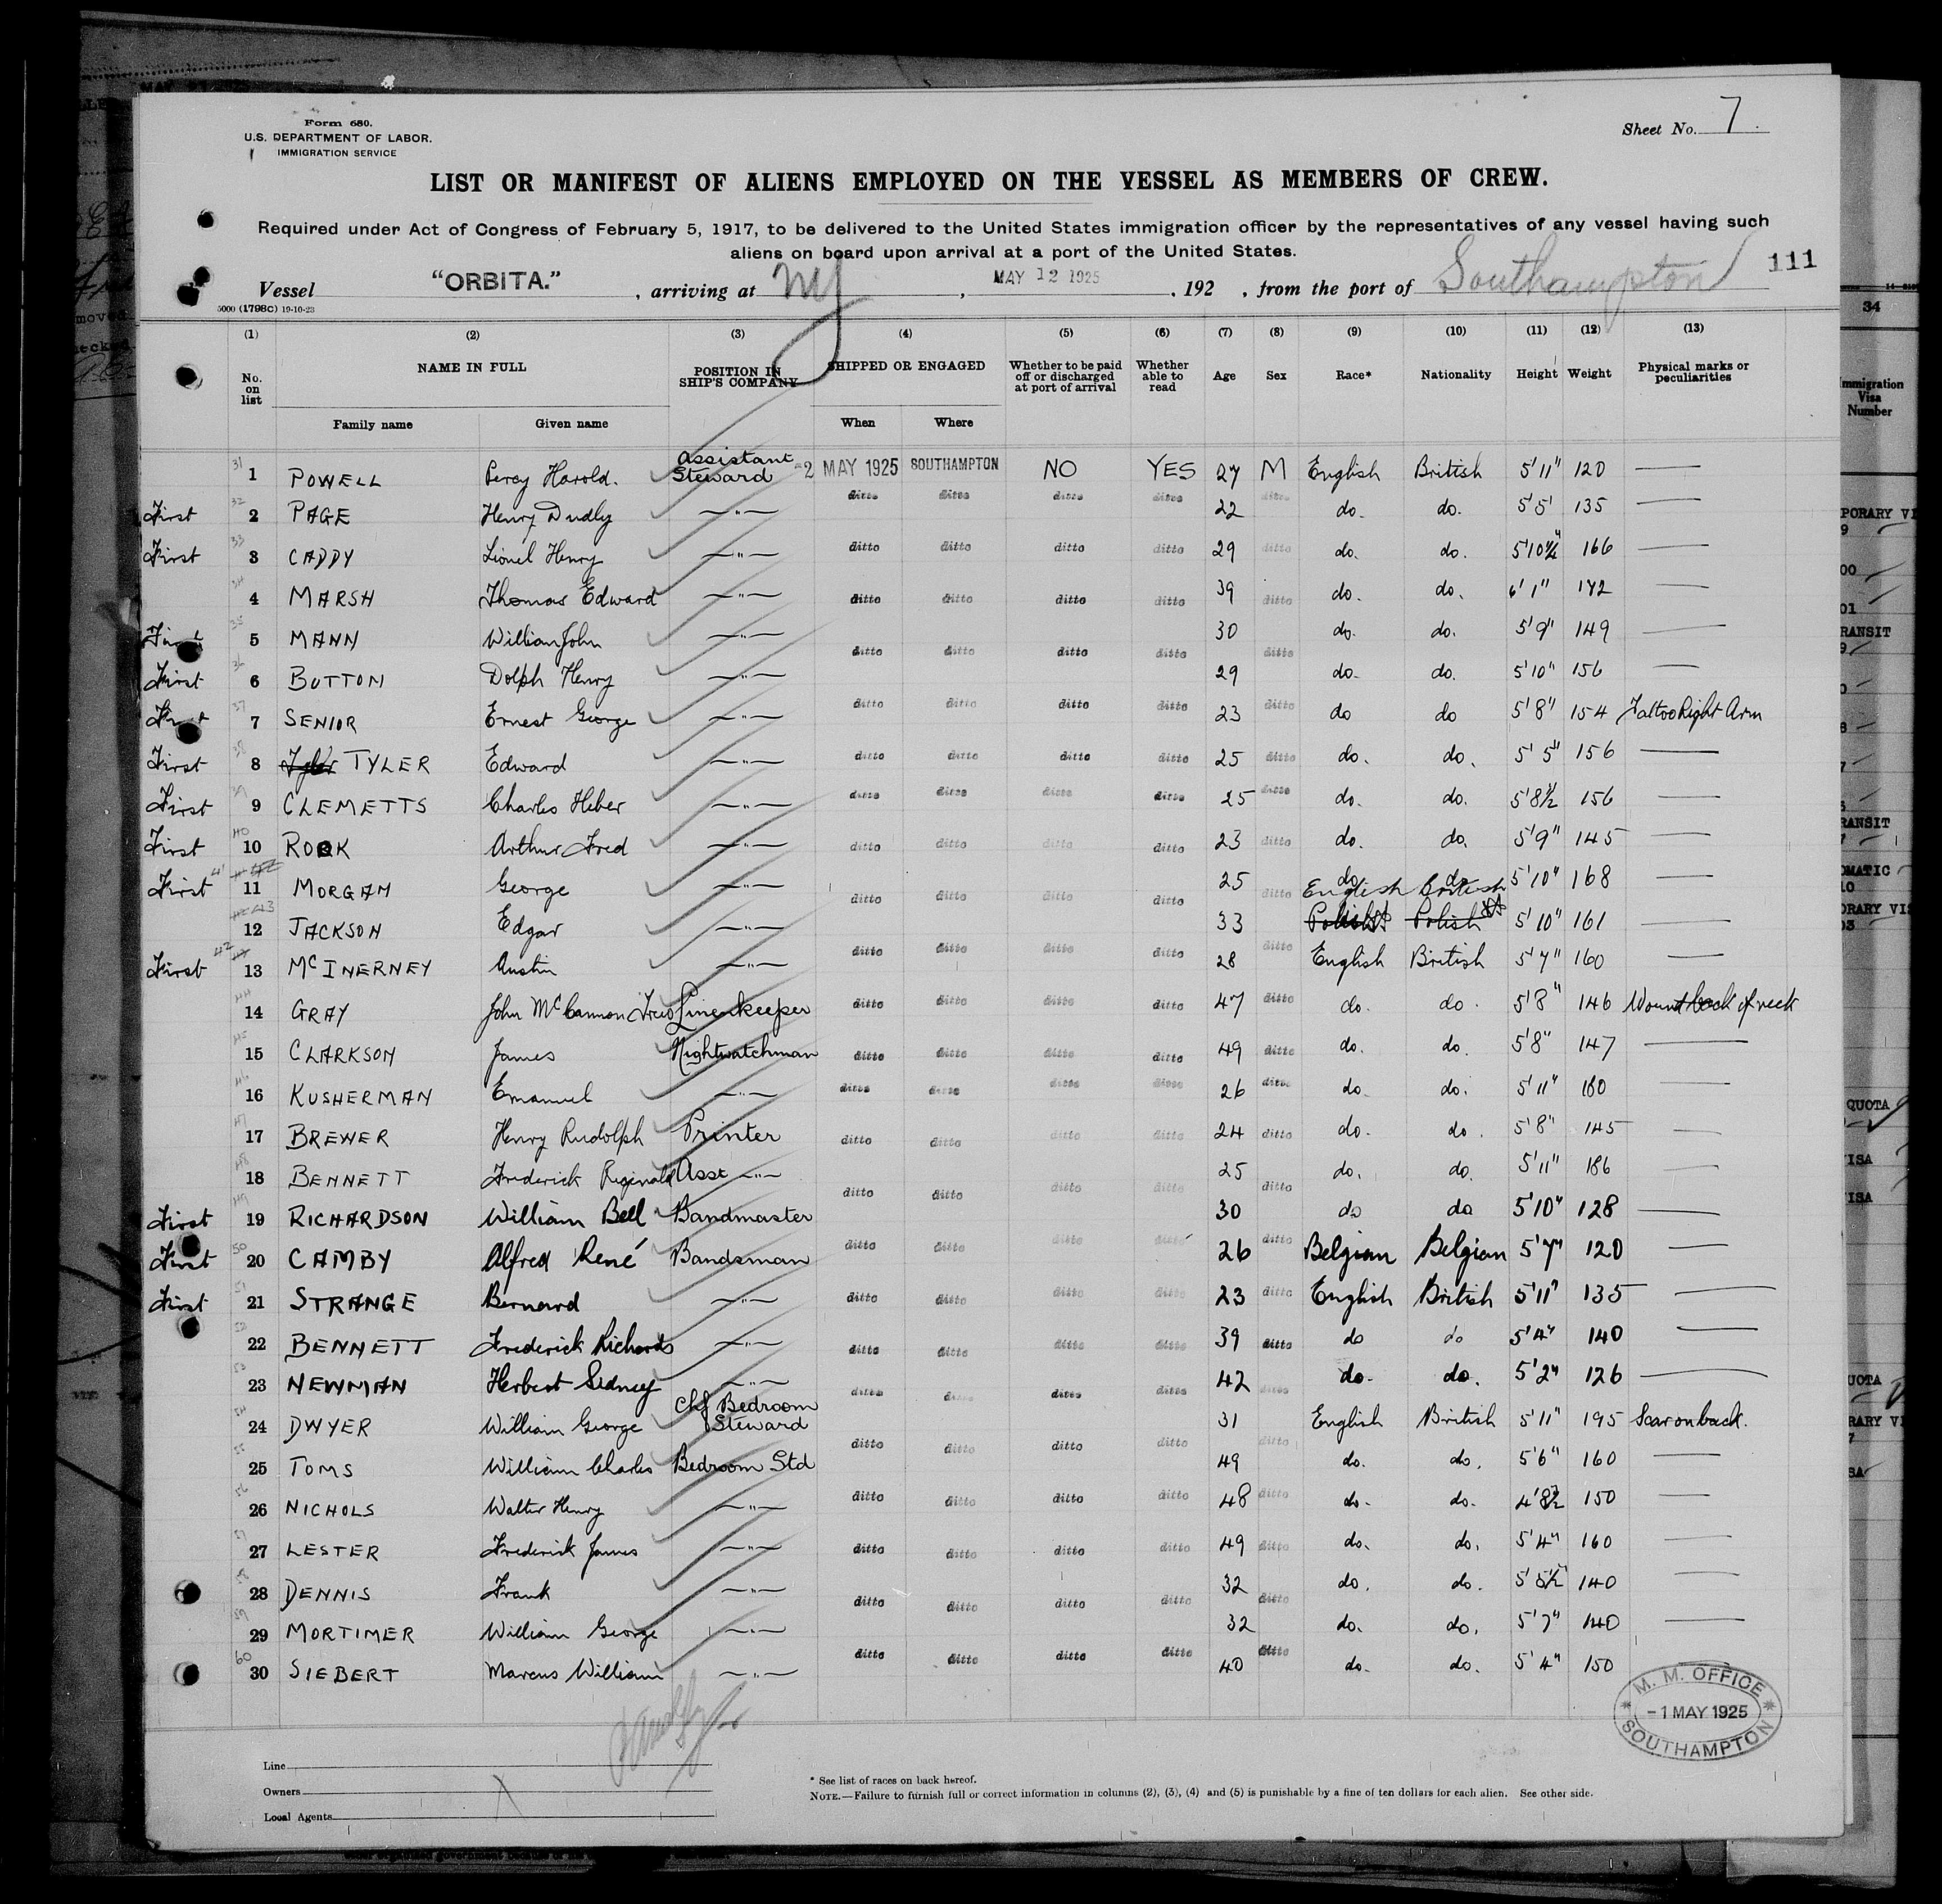 Form 680.
U.S. DEPARTMENT OF LABOR.
IMMIGRATION SERVICE
Sheet No. 7.
LIST OR MANIFEST OF ALIENS EMPLOYED ON THE VESSEL AS MEMBERS OF CREW.
Required under Act of Congress of February 5, 1917, to be delivered to the United States immigration officer by the representatives of any vessel having such
aliens on board upon arrival at a port of the United States.
111
Vessel "ORBITA." , arriving at NY , MAY 12 1925 , 192 , from the port of Southampton
5000 (1798C) 19-10-23
(1) (2) (3) (4) (5) (6) (7) (8) (9) (10) (11) (12) (13)
No. on list NAME IN FULL POSITION IN SHIP'S COMPANY SHIPPED OR ENGAGED Whether to be paid off or discharged at port of arrival Whether able to read Age Sex Race* Nationality Height Weight Physical marks or peculiarities
Family name Given name When Where
1 POWELL Percy Harold. Assistant Steward -2 MAY 1925 SOUTHAMPTON NO YES 27 M English British 5'11" 120 —
First 2 PAGE Henry Dudly —"— ditto ditto ditto ditto 22 ditto do. do. 5'5' 135 —
First 3 CADDY Lionel Henry —"— ditto ditto ditto ditto 29 ditto do. do. 5'10¼" 166 —
4 MARSH Thomas Edward —"— ditto ditto ditto ditto 39 ditto do. do. 6'1" 172 —
First 5 MANN William John —"— ditto ditto ditto ditto 30 ditto do. do. 5'9" 149 —
First 6 BUTTON Dolph Henry —"— 29 do. do. 5'10" 156 —
First 7 SENIOR Ernest George —"— ditto ditto ditto ditto 23 ditto do do 5'8" 154 Tattoo Right Arm
First 8 Tyler TYLER Edward —"— ditto ditto ditto ditto 25 ditto do. do. 5'5" 156 —
First 9 CLEMETTS Charles Heber —"— ditto ditto ditto ditto 25 ditto do. do. 5'8½" 156 —
First 10 ROOK Arthur Fred —"— ditto ditto ditto ditto 23 ditto do. do. 5'9" 145 —
First 11 MORGAN George —"— ditto ditto ditto ditto 25 ditto do. do. 5'10" 168 —
12 JACKSON Edgar —"— 33 Polish English Polish British 5'10" 161 —
First 13 McINERNEY Austin —"— ditto ditto ditto ditto 28 ditto English British 5'7" 160 —
14 GRAY John McCannon Linenkeeper ditto ditto ditto ditto 47 ditto do. do. 5'8" 146 Wound back of neck
15 CLARKSON James Nightwatchman ditto ditto ditto ditto 49 ditto do. do. 5'8" 147 —
16 KUSHERMAN Emanuel —"— ditto ditto ditto ditto 26 ditto do. do. 5'11" 180 —
17 BREWER Henry Rudolph Printer ditto ditto ditto ditto 24 ditto do. do. 5'8" 145 —
18 BENNETT Frederick Reginald Asst —"— ditto ditto ditto ditto 25 ditto do. do. 5'11" 186 —
First 19 RICHARDSON William Bell Bandmaster 30 do do 5'10" 128 —
First 20 CAMBY Alfred René Bandsman ditto ditto ditto ditto 26 ditto Belgian Belgian 5'7" 120 —
First 21 STRANGE Bernard —"— ditto ditto ditto ditto 23 ditto English British 5'11" 135 —
22 BENNETT Frederick Richards —"— ditto ditto ditto ditto 39 ditto do do 5'4" 140 —
23 NEWMAN Herbert Sidney —"— ditto ditto ditto ditto 42 ditto do. do. 5'2" 126 —
24 DWYER William George Chf Bedroom Steward 31 English British 5'11" 195 Scar on back.
25 TOMS William Charles Bedroom Std ditto ditto ditto ditto 49 ditto do. do. 5'6" 160 —
26 NICHOLS Walter Henry —"— ditto ditto ditto ditto 48 ditto do. do. 4'8½" 150 —
27 LESTER Frederick James —"— ditto ditto ditto ditto 49 ditto do. do. 5'4" 160 —
28 DENNIS Frank —"— ditto ditto ditto ditto 32 ditto do. do. 5'5½" 140 —
29 MORTIMER William George —"— 32 do. do. 5'7" 140 —
30 SIEBERT Marcus William —"— ditto ditto ditto ditto 40 ditto do. do. 5'4" 150
M. M. OFFICE
-1 MAY 1925
SOUTHAMPTON
Line
Owners
Local Agents
* See list of races on back hereof.
NOTE.—Failure to furnish full or correct information in columns (2), (3), (4) and (5) is punishable by a fine of ten dollars for each alien. See other side.
34
Immigration
Visa
Number